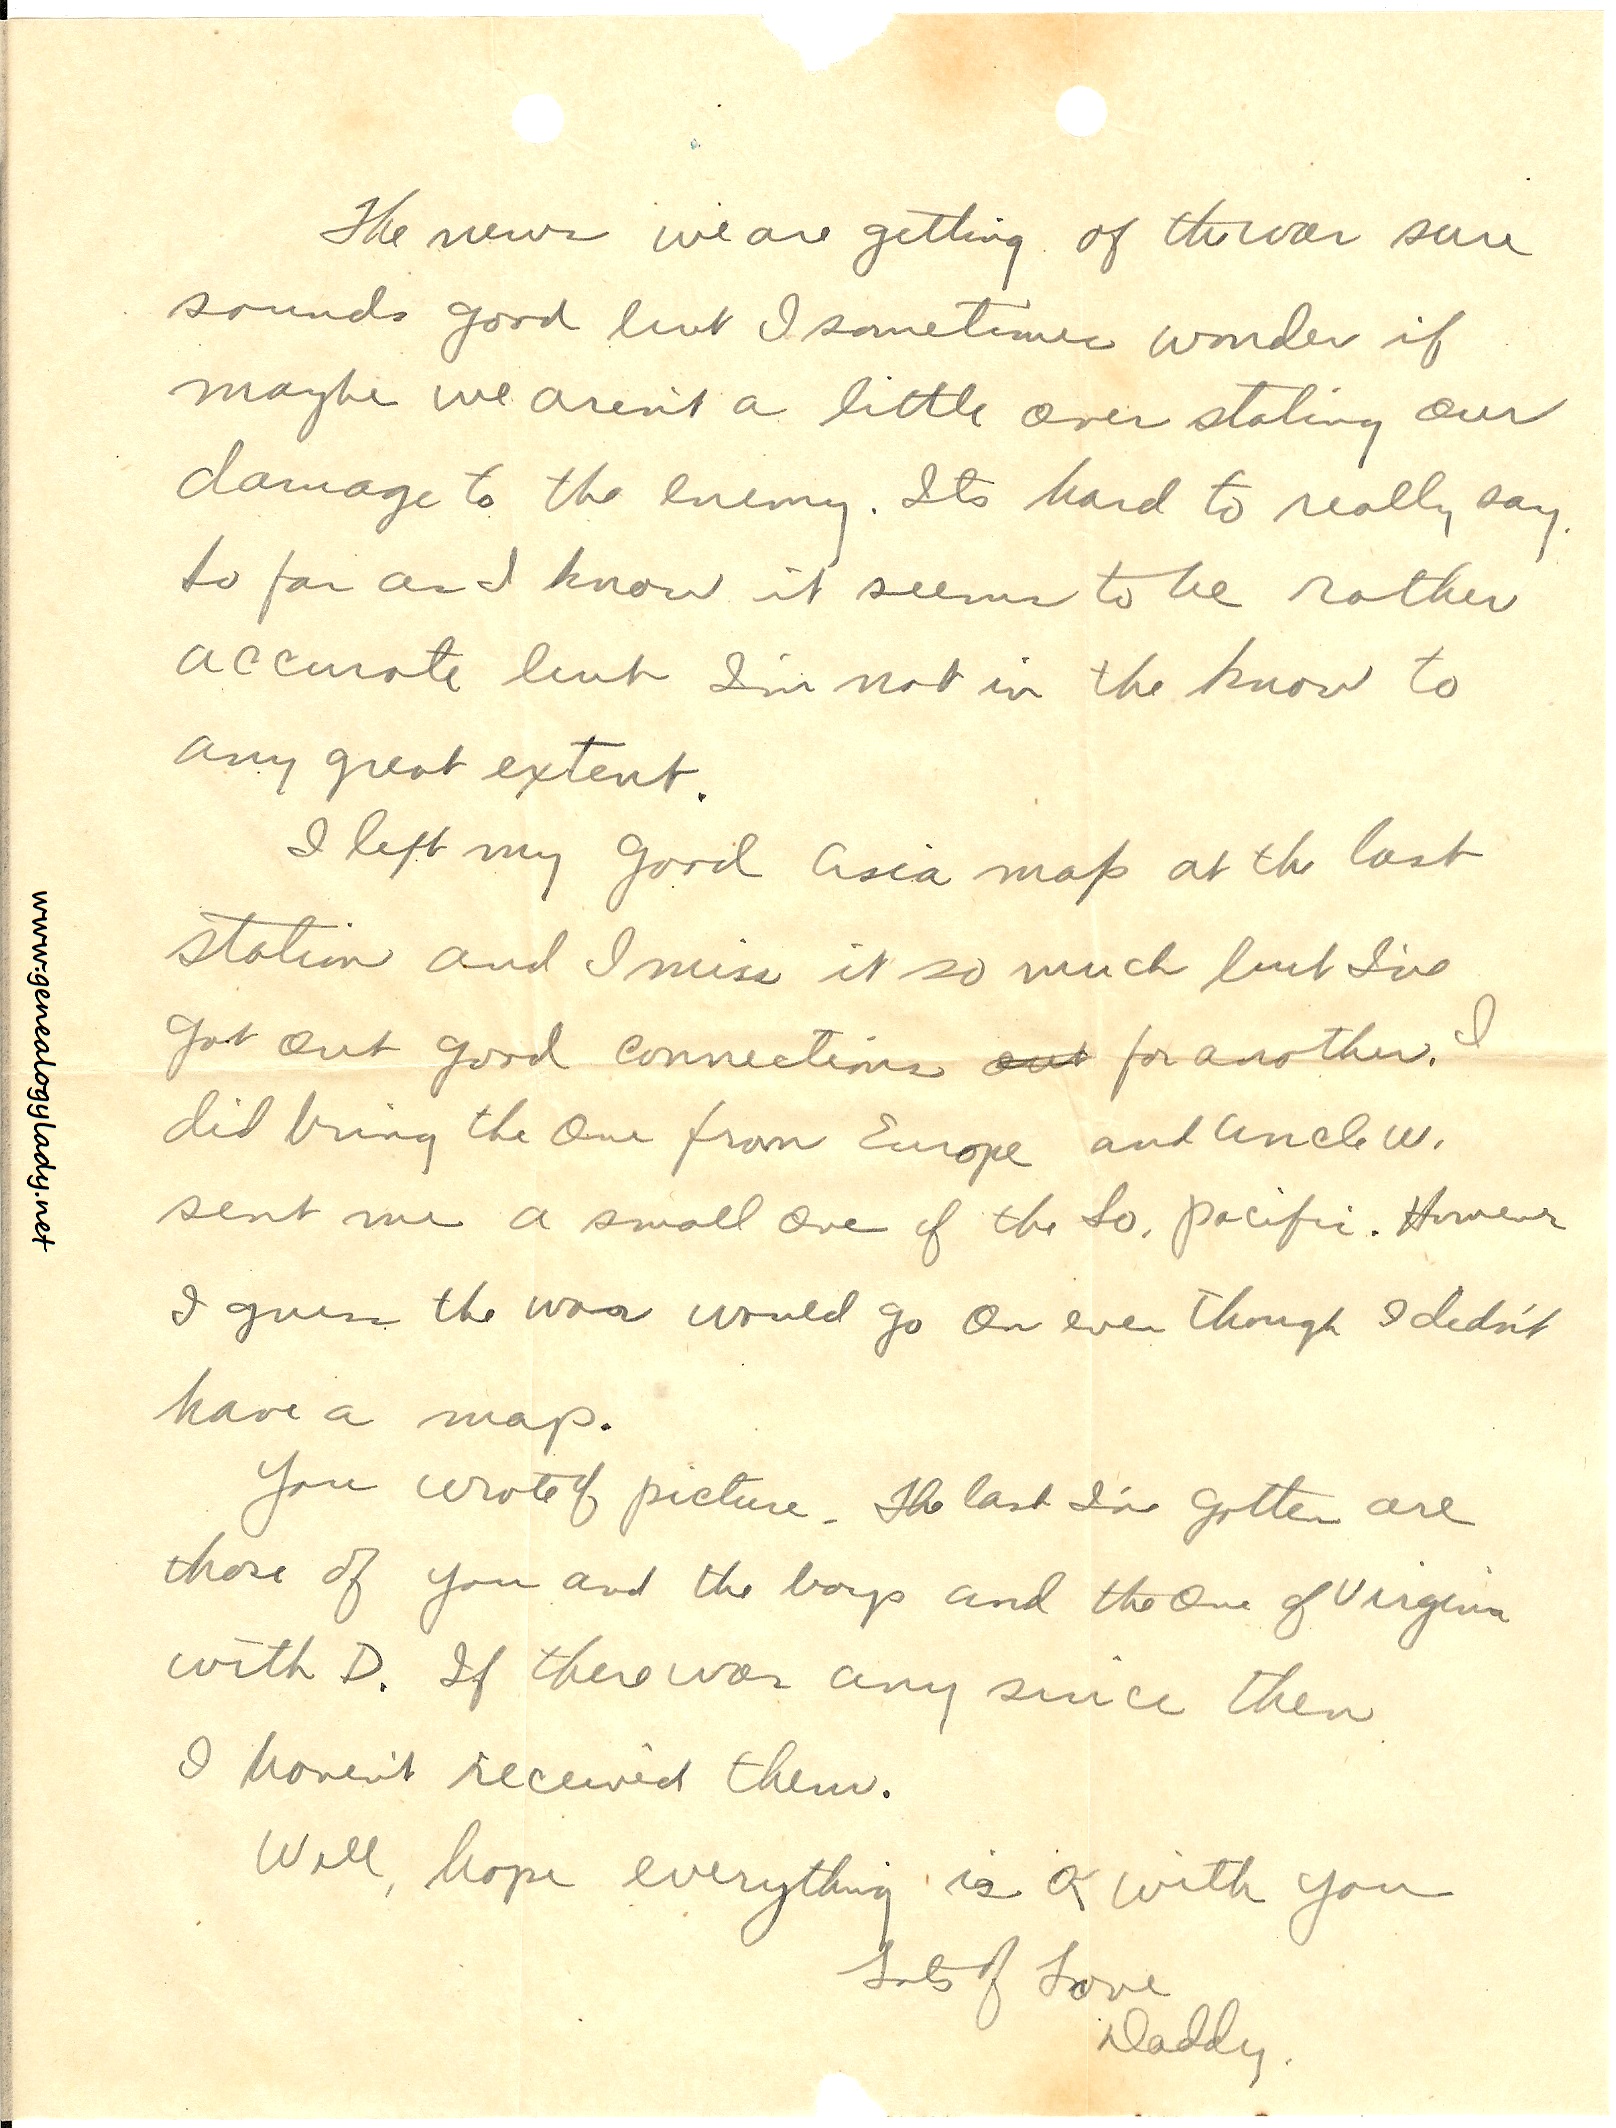 The news we are getting of the war sure
sounds good but I sometimes wonder if
maybe we aren't a little over stating our
damage to the enemy. Its hard to really say.
So far as I know it seems to be rather
accurate but I'm not in the know to
any great extent.
I left my good Asia map at the last
station and I miss it so much but I've
got out good connections out for another. I
did bring the one from Europe and Uncle W.
sent me a small one of the So. Pacific. However
I guess the war would go on even though I didn't
have a map.
You wrote of picture. The last I've gotten are
those of you and the boys and the one of Virginia
with D. If there was any since then
I haven't received them.
Well, hope everything is OK with you
Lots of Love
Daddy.
www.genealogylady.net